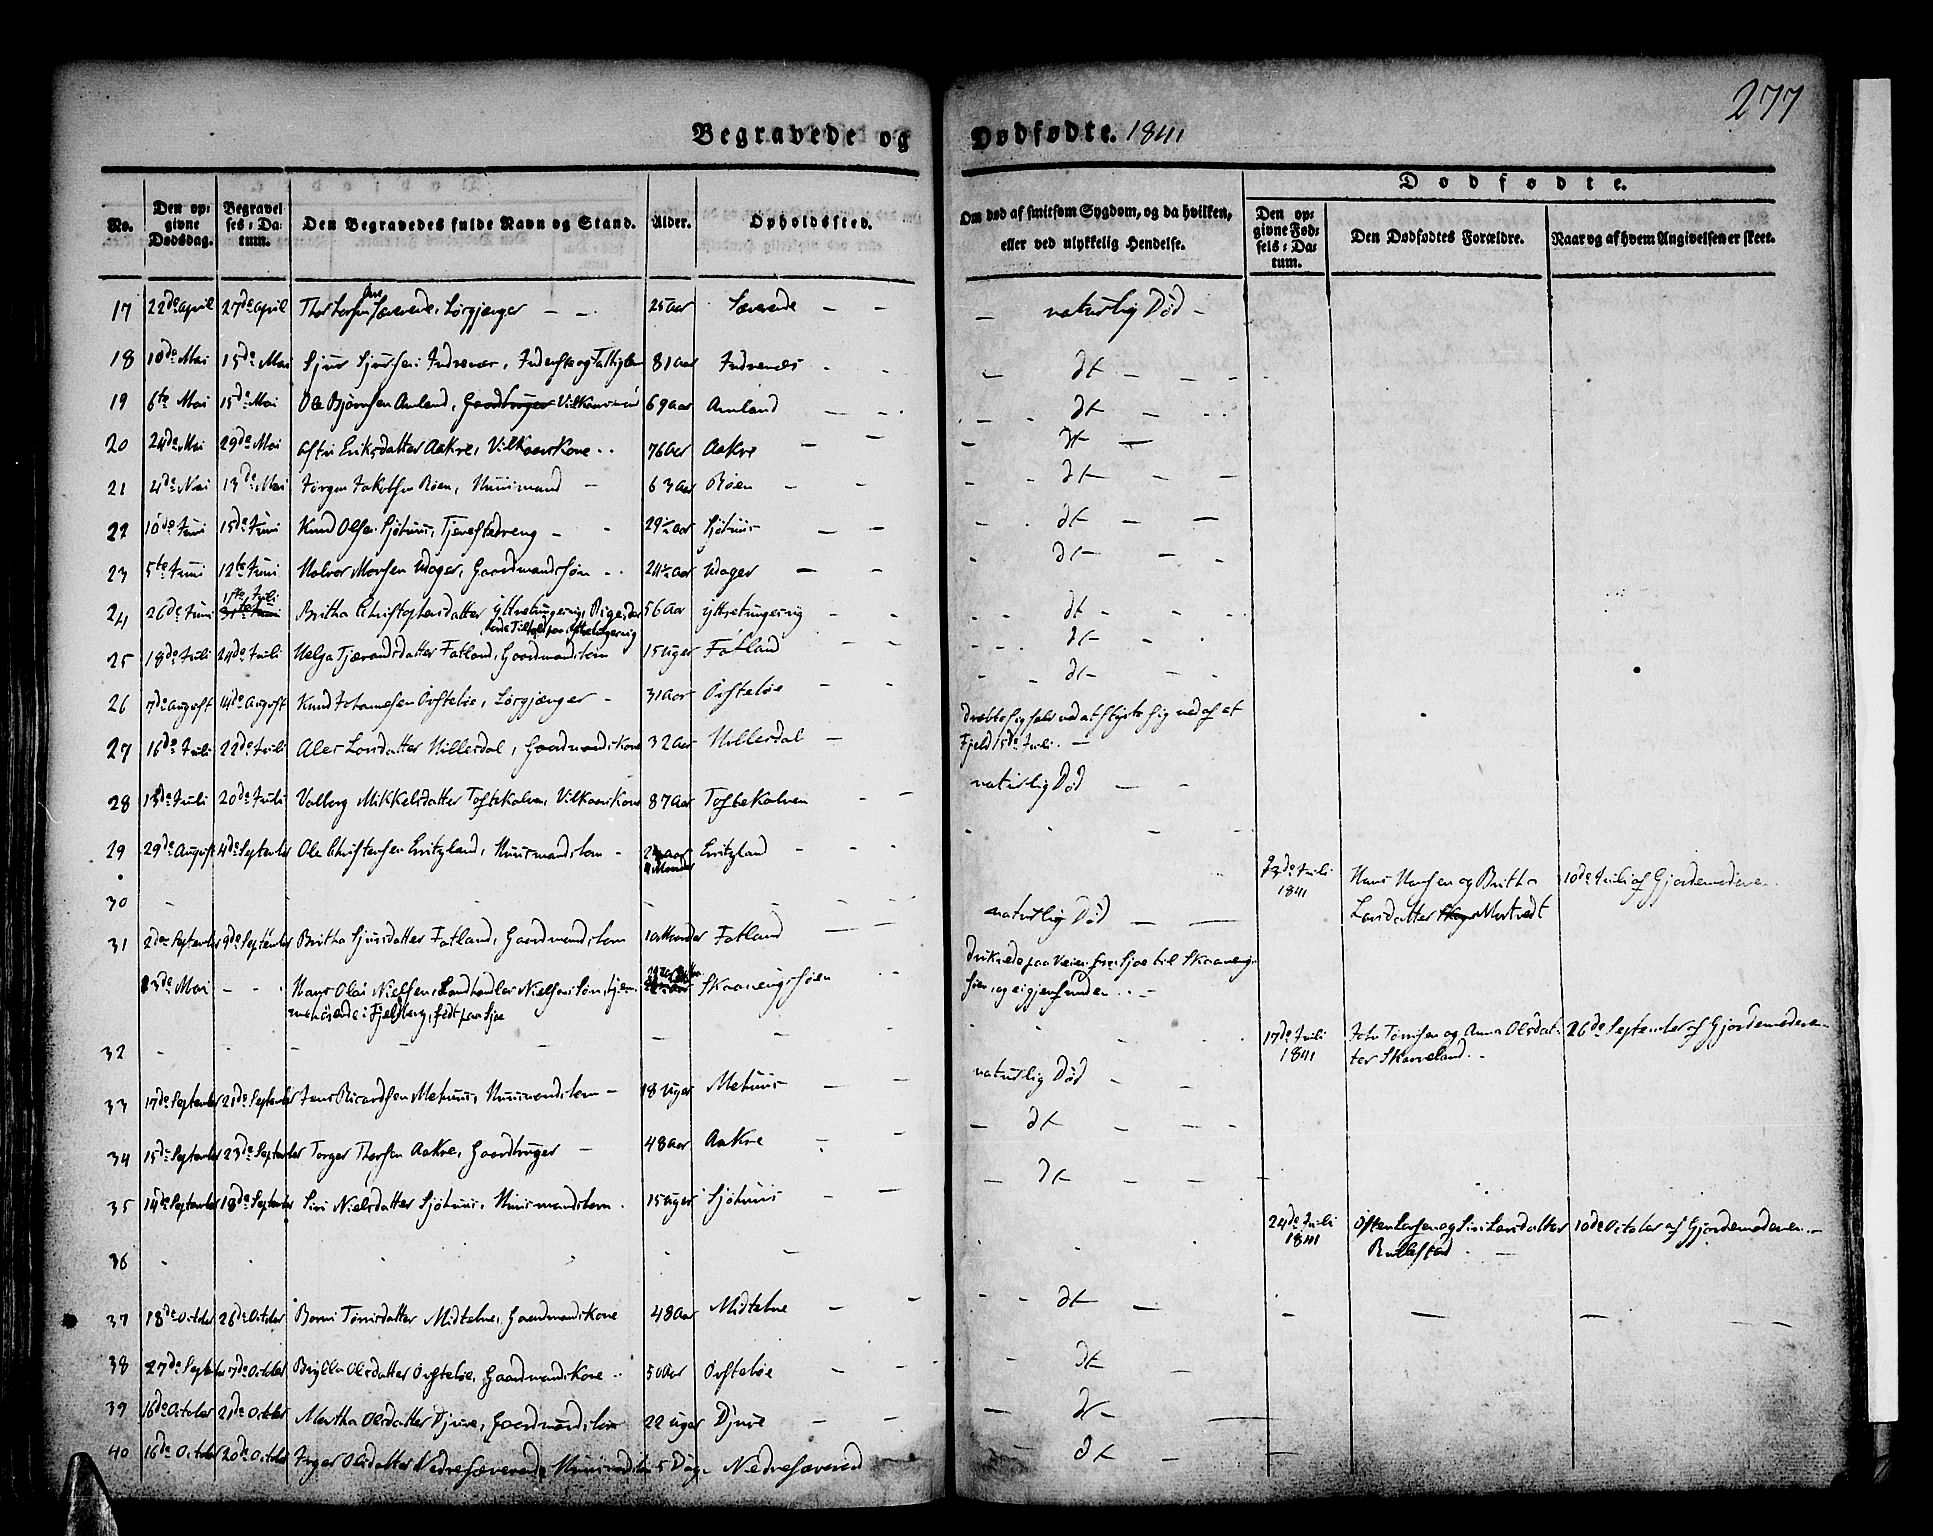 277
Begravede og Dødfødte. 1841
Dødfødte.
No.
Den op-
givne
Dødsdag.
Begravel-
ses-Da-
tum.
Den Begravedes fulde Navn og Stand.
Alder.
Opholdssted.
Om død af smitsom Sygdom, og da hvilken,
eller ved ulykkelig Hendelse.
Den op-
givne Fød-
sels-Da-
tum.
Den Dødfødtes Forældre.
Naar og af hvem Angivelsen er skeet.
17 22de April 27de April Thor Larsen Sævereide, Lørgjænger — — 25 Aar Sævereide — — — naturlig Død —
18 10de Mai 15de Mai Sjur Sjursen Indrenæs, Inderste og 81 Aar Indrenæs — dt — — —
19 6te Mai 15de Mai Ole Bjørnsen Amland, Gaardbruger Vilkaarsmand 69 Aar Amland — — dt —
20 24de Mai 29de Mai Eriksdatter Aakre, Vilkaarskone 76 Aar Aakre — — dt —
21 4de Mai 13de Mai Jørgen Jakobsen Røen, Huusmand — 63 Aar Røen — — dt —
22 10de Juni 15de Juni Knud Olsen Sjøhuus, Tjenestedreng — 29½ Aar Sjøhuus — — dt — —
23 5te Juni 12te Juni Halvor Monsen Udager, Gaardmandssøn 24½ Aar Udager — — dt —
24 26de Juni 1ste Juli Britha Christophersdatter Yttretungesvig, 56 Aar Yttretungesvig — dt —
25 18de Juli 24de Juli Helga Tjærandsdatter Fatland, Gaardmandsbarn 15 Uger Fatland — dt —
26 7de August 14de August Knud Johannesen Øvstebøe, Lørgjænger — 31 Aar Øvstebøe — — dt —
dræbte sig selv ved at styrte sig ned af et
27 16de Juli 22de Juli Larsdatter Hillesdal, Gaardmandskone 32 Aar Hillesdal — Fjeld 15de Juli. —
28 13de Juli 20de Juli Valborg Mikkelsdatter Toftekalven, Vilkaarskone 87 Aar Toftekalven — naturlig Død — —
29 29de August 4de September Ole Christensen Huusmandsbarn — 2 Aar — —
Maaneder
30 — — — 23de Juli Hans Hansen og Britha 10de Juli af Gjordemoderen
1841 Larsdatter Mortvedt
31 2den September 9de September Britha Sjursdatter Fatland, Gaardmandsbarn 10 Maaneder Fatland — naturlig Død — —
13de Mai — Hans Olai Nielsen, Landhandler Nielsens Søn, Skaanevigsøen druknede paa Veien fra Sjoe til Skaanevig-
i Fjelberg, født paa Sjoe søen, og ei gjenfunden. —
32 — — — 17de Juli Johs Tønnesen og Anna Olsdat- 26de September af Gjordemoderen
1841 ter Skarveland. —
33 17de September 21de September Jens Ricardsen Mehuus, Huusmandsbarn — 18 Uger Mehuus — naturlig Død
34 15de September 23de September Torger Thorsen Aakre, Gaardbruger — 48 Aar Aakre — — dt —
35 14de September 18de September Siri Nielsdatter Sjøhuus, Huusmandsbarn 15 Uger Sjøhuus — — dt —
36 24de Juli Østen Larsen og Siri Larsdatter 10de October af Gjordemoderen. —
1841 Rullestad —
37 18de October 26de October Tønnesdatter Midtelve, Gaardmandskone 48 Aar Midtelve — dt — — — —
38 27de September 7de October Olsdatter Øvstebøe, Gaardmandskone 50 Aar Øvstebøe — dt —
39 16de October 21de October Martha Olsdatter Djuve, Gaardmandsbarn 22 Uger Djuve — — dt —
40 16de October 20de October Inger Olsdatter Nedresævereide, Huusmandsbarn 5 Dage Nedresævereid — dt —